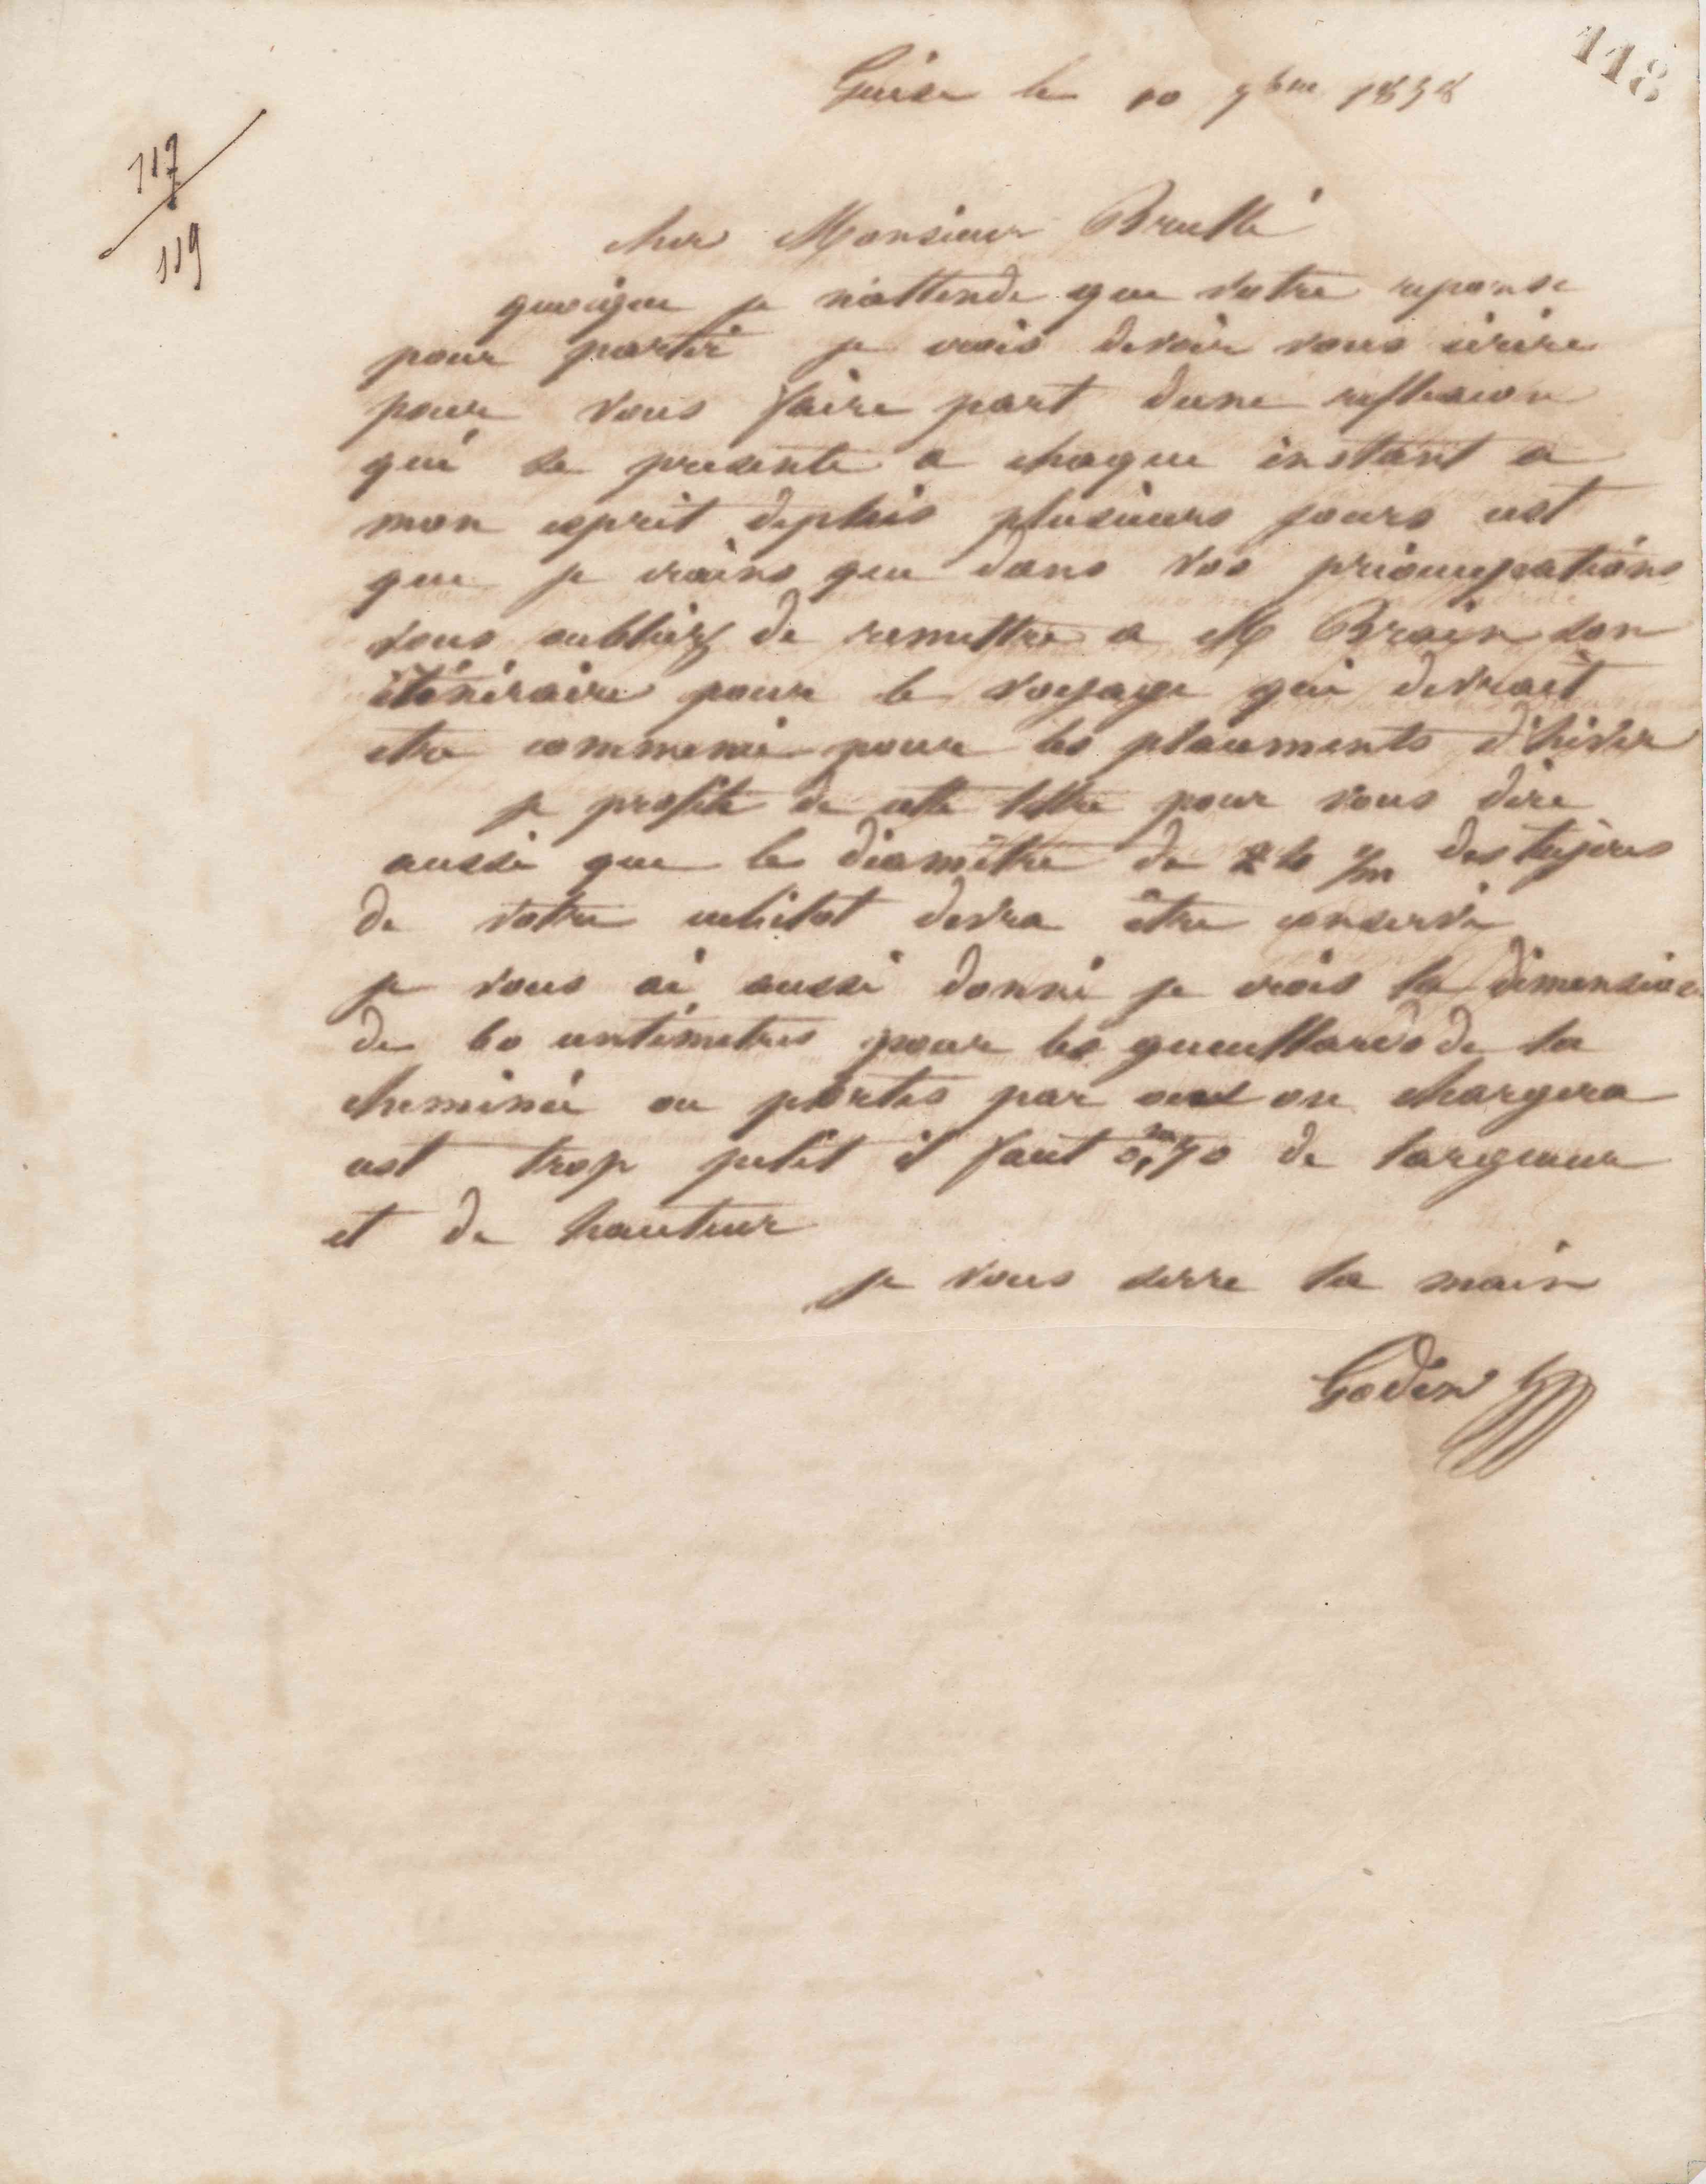 118
Guise le 10 9bre 1858
117
119
cher Monsieur Brullé
quoique je n'attende que votre reponse
pour partir je crois devoir vous écrire
pour vous faire part dune reflexion
qui se presente a chaque instant a
mon esprit depuis plusieurs jours cest
que je crains que dans vos préoccupations
vous oubliez de remettre a M Brain son
itinéraire pour le voyage qui devrait
etre commencé pour les placements d'hiver
je profite de cette lettre pour vous dire
aussi que le diamètre de des tuyères
de votre cubilot devra être conservé
je vous ai aussi donné je crois la dimension
de 60 centimetres pour les gueullards de la
cheminée ou portes par on chargera
cest trop petit il faut 0,m70 de largeur
et de hauteur
je vous serre la main
Godin